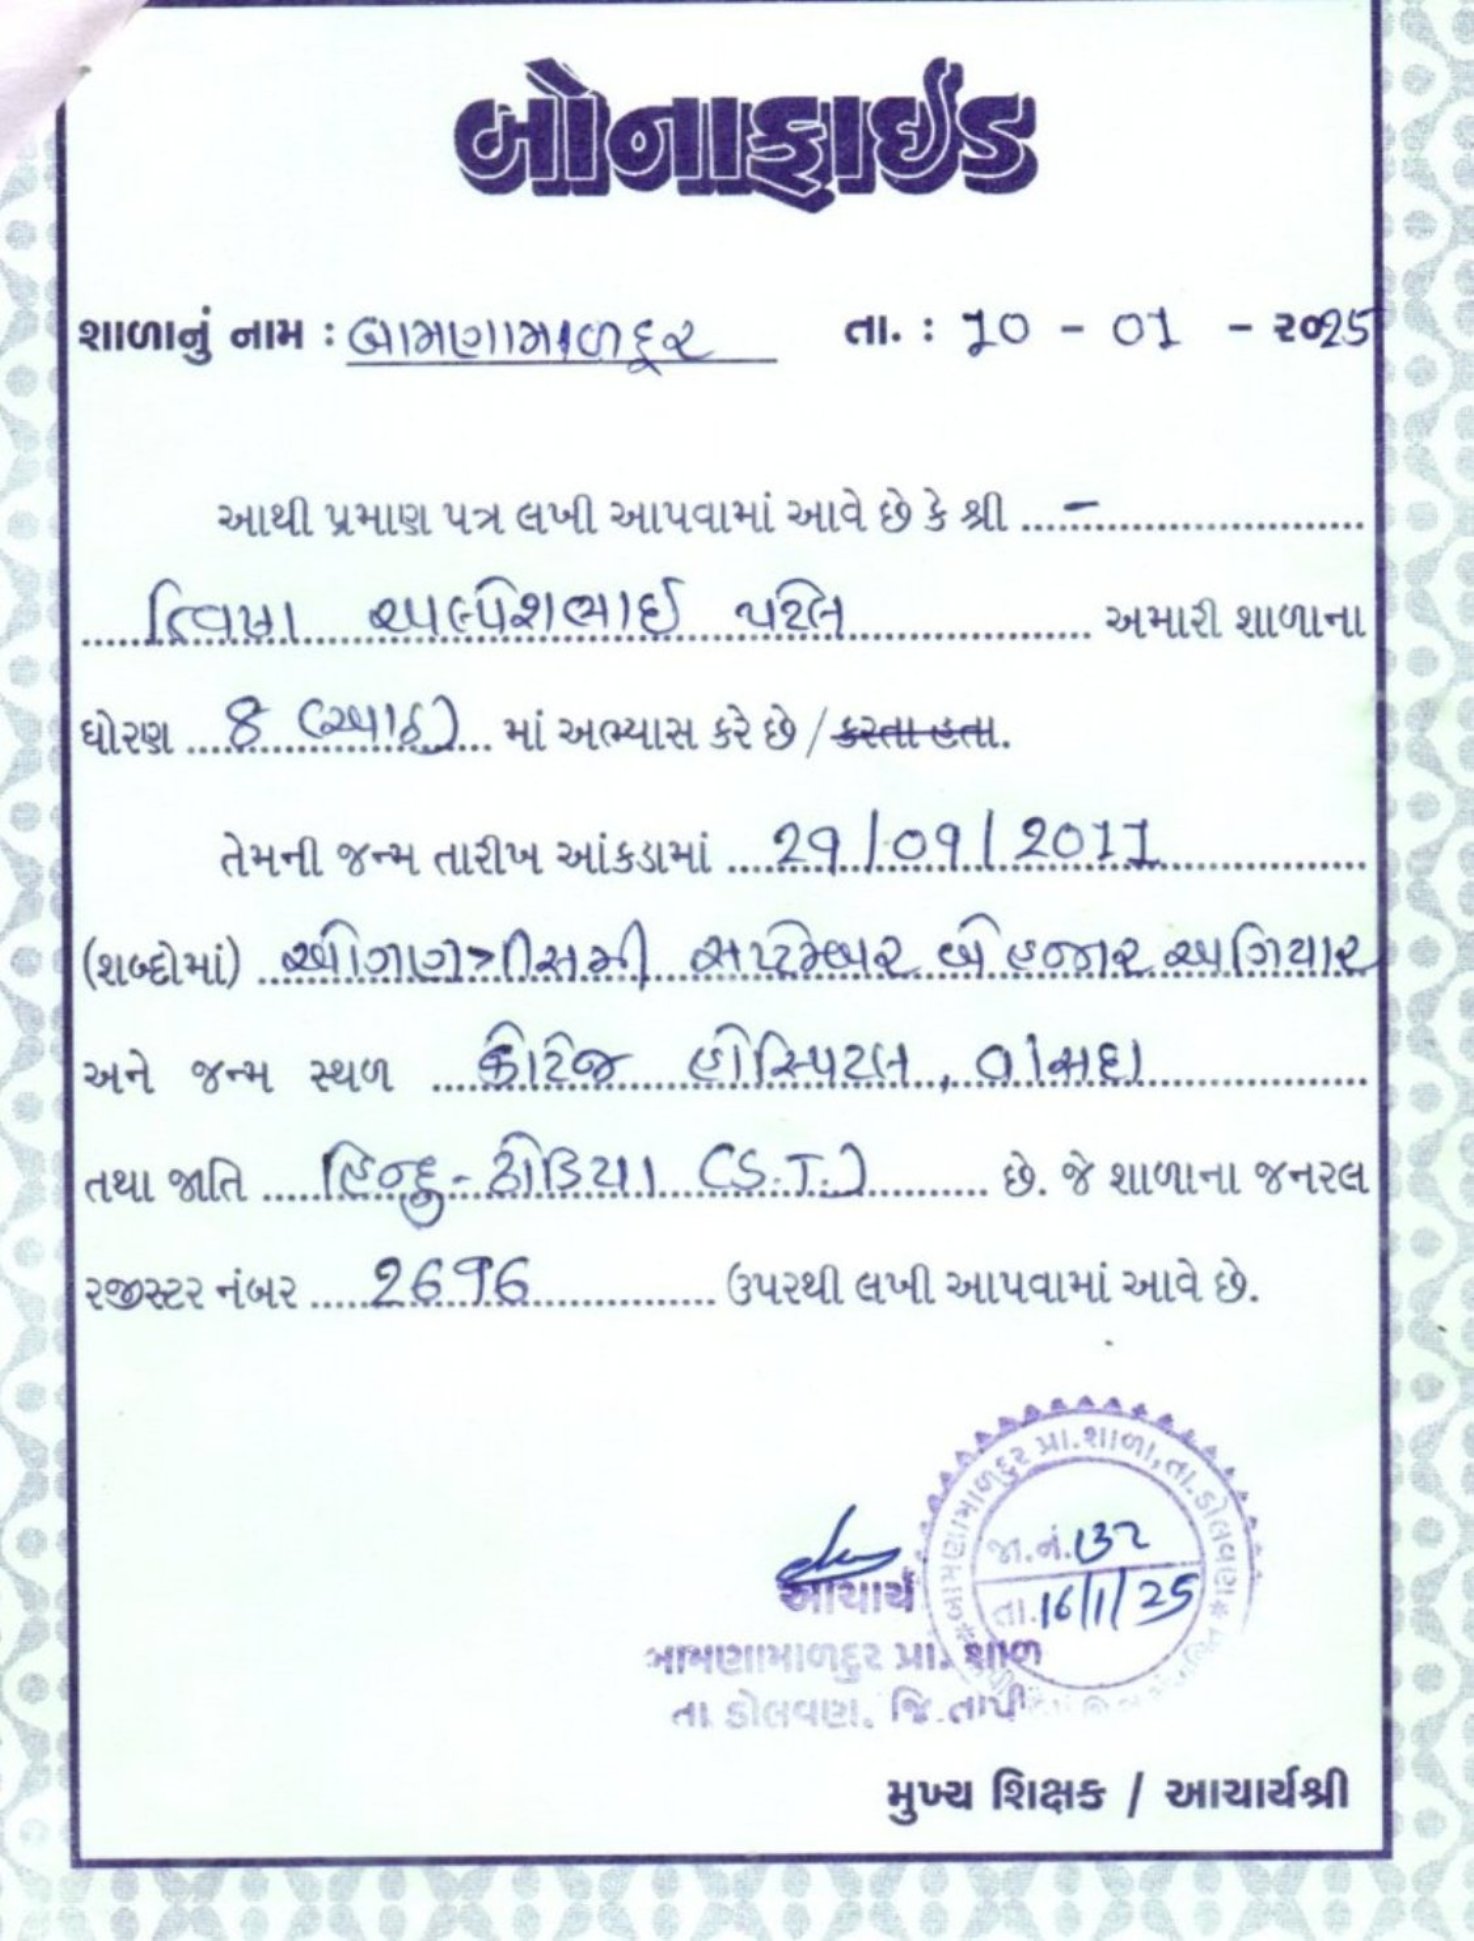 બોનાફાઈડ
શાળાનું નામ : બામણામાળદૂર તા. : 10 - 01 - ૨૦25
આથી પ્રમાણ પત્ર લખી આપવામાં આવે છે કે શ્રી -
ત્વિષા અલ્પેશભાઈ પટેલ અમારી શાળાના
ધોરણ 8 (આઠ) માં અભ્યાસ કરે છે / કરતા હતા.
તેમની જન્મ તારીખ આંકડામાં 29/09/2011
(શબ્દોમાં) ઓગણત્રીસમી સપ્ટેમ્બર બે હજાર અગિયાર
અને જન્મ સ્થળ કોટેજ હોસ્પિટલ, વાંસદા
તથા જાતિ હિન્દુ - ઢોડિયા (S.T.) છે. જે શાળાના જનરલ
રજીસ્ટર નંબર 2696 ઉપરથી લખી આપવામાં આવે છે.
બામણામાળદુર પ્રા.શાળા, તા.ડોલવણ
જા.નં.132
તા.16/1/25
આચાર્ય
બામણામાળદુર પ્રા. શાળ
તા. ડોલવણ. જિ.તાપી
મુખ્ય શિક્ષક / આચાર્યશ્રી